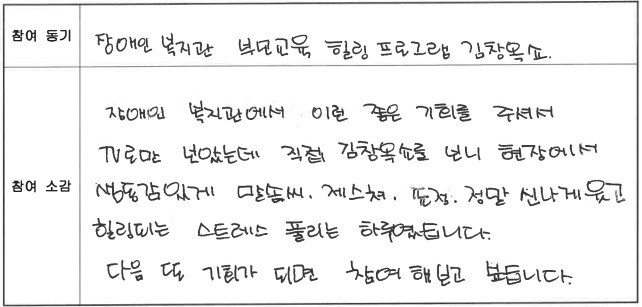 참여 동기
장애인 복지관 부모교육 힐링 프로그램 김창옥쇼.
참여 소감
장애인 복지관에서 이런 좋은 기회를 주셔서
TV로만 보았는데 직접 김창옥쇼를 보니 현장에서
생동감있게 말솜씨. 제스쳐. 표정. 정말 신나게 웃고
힐링되는 스트레스 풀리는 하루였습니다.
다음 또 기회가 되면 참여해보고 싶습니다.